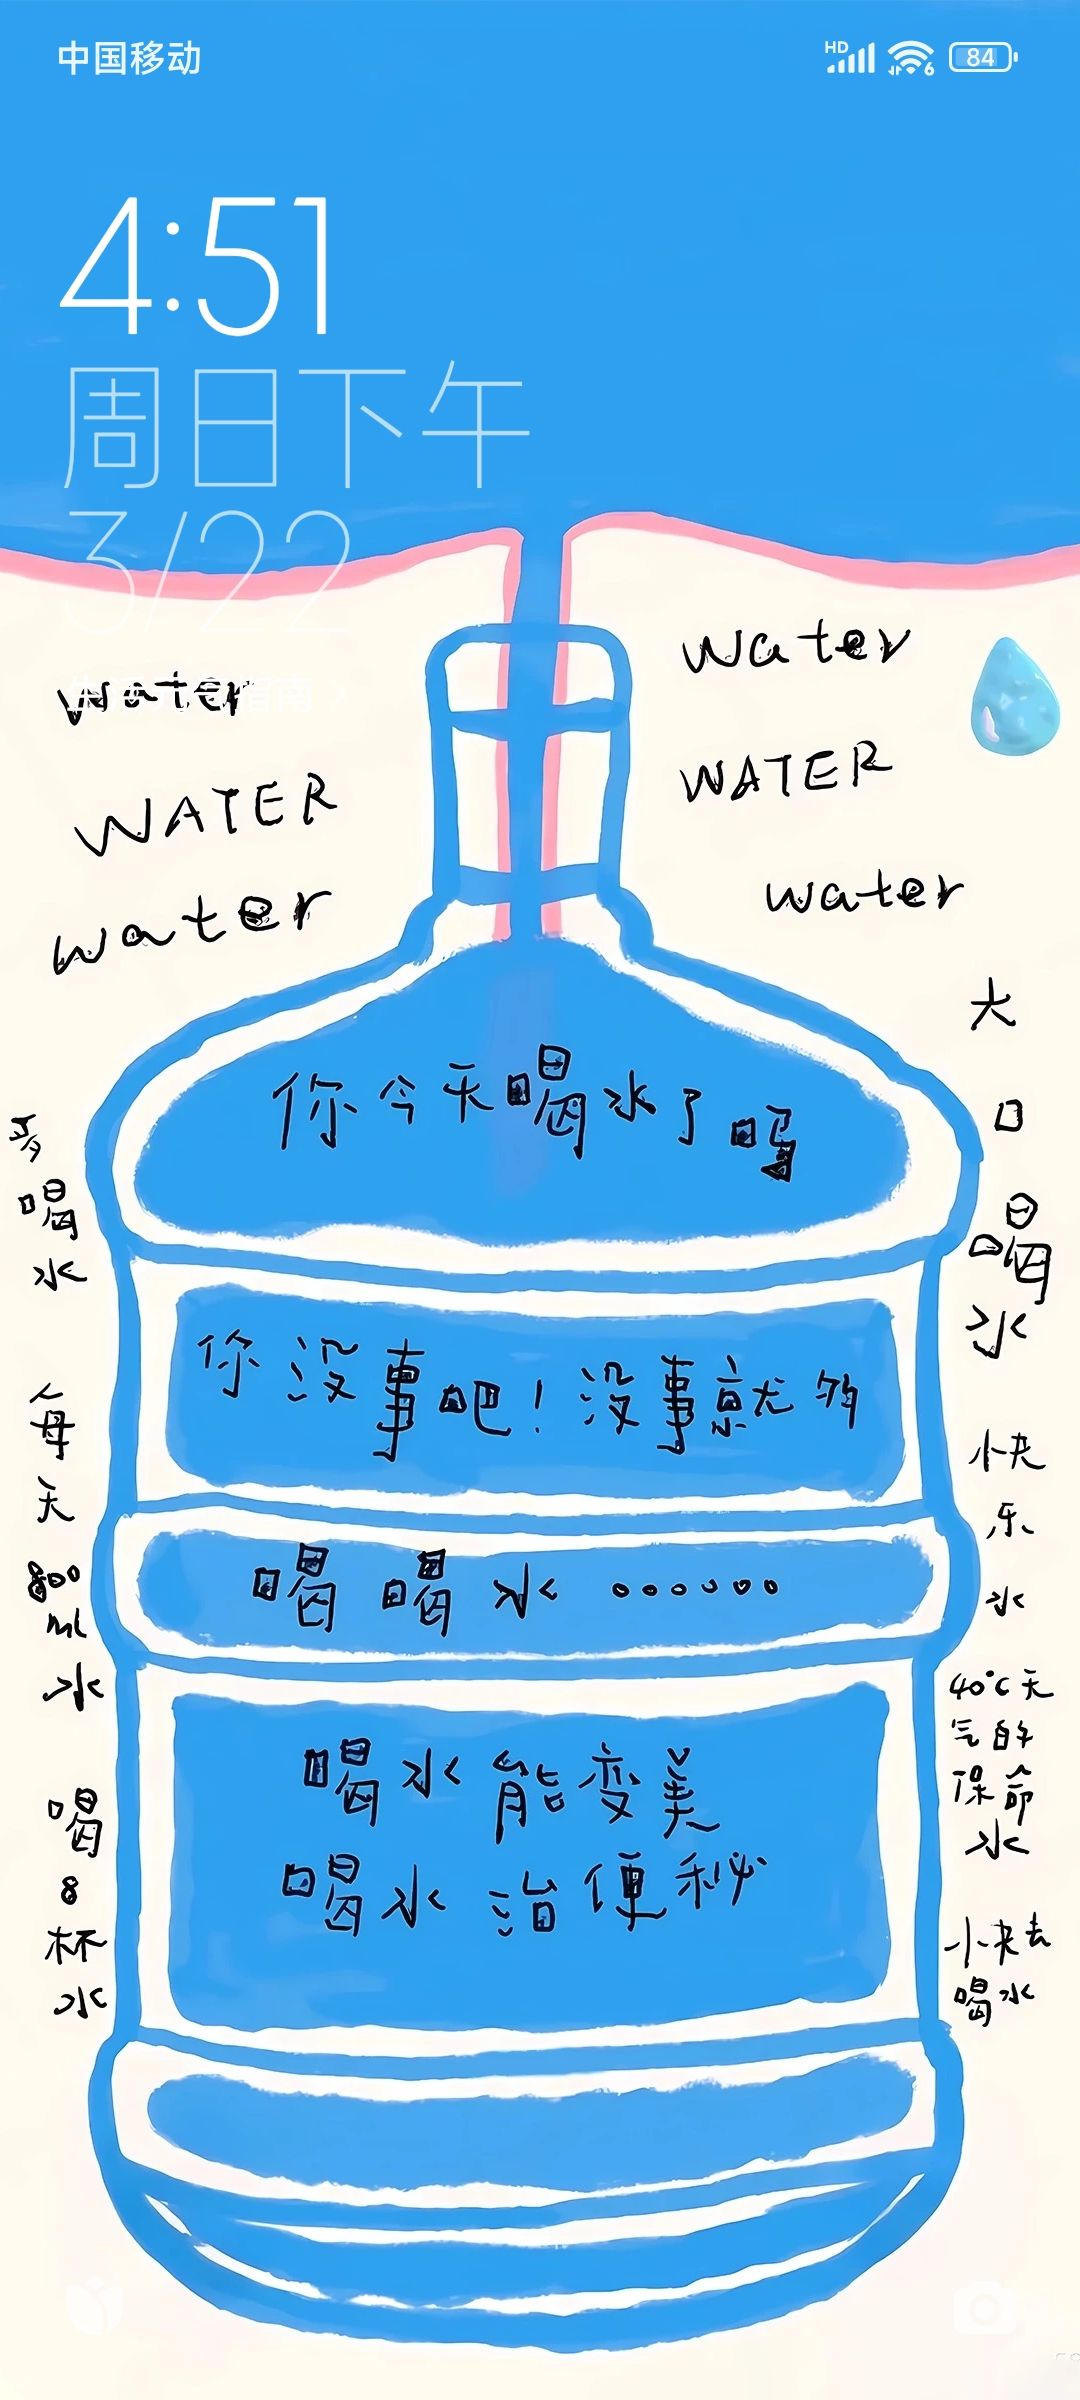 中国移动
HD
6
84
4:51
周日下午
3/22
water
WATER
water
water
WATER
water
你今天喝水了吗
你没事吧！没事就多
喝喝水。。。。。。
喝水能变美
喝水治便秘
多喝水
每天800ml水
喝8杯水
大口喝水
快乐水
40℃天气的保命水
小夹去喝水